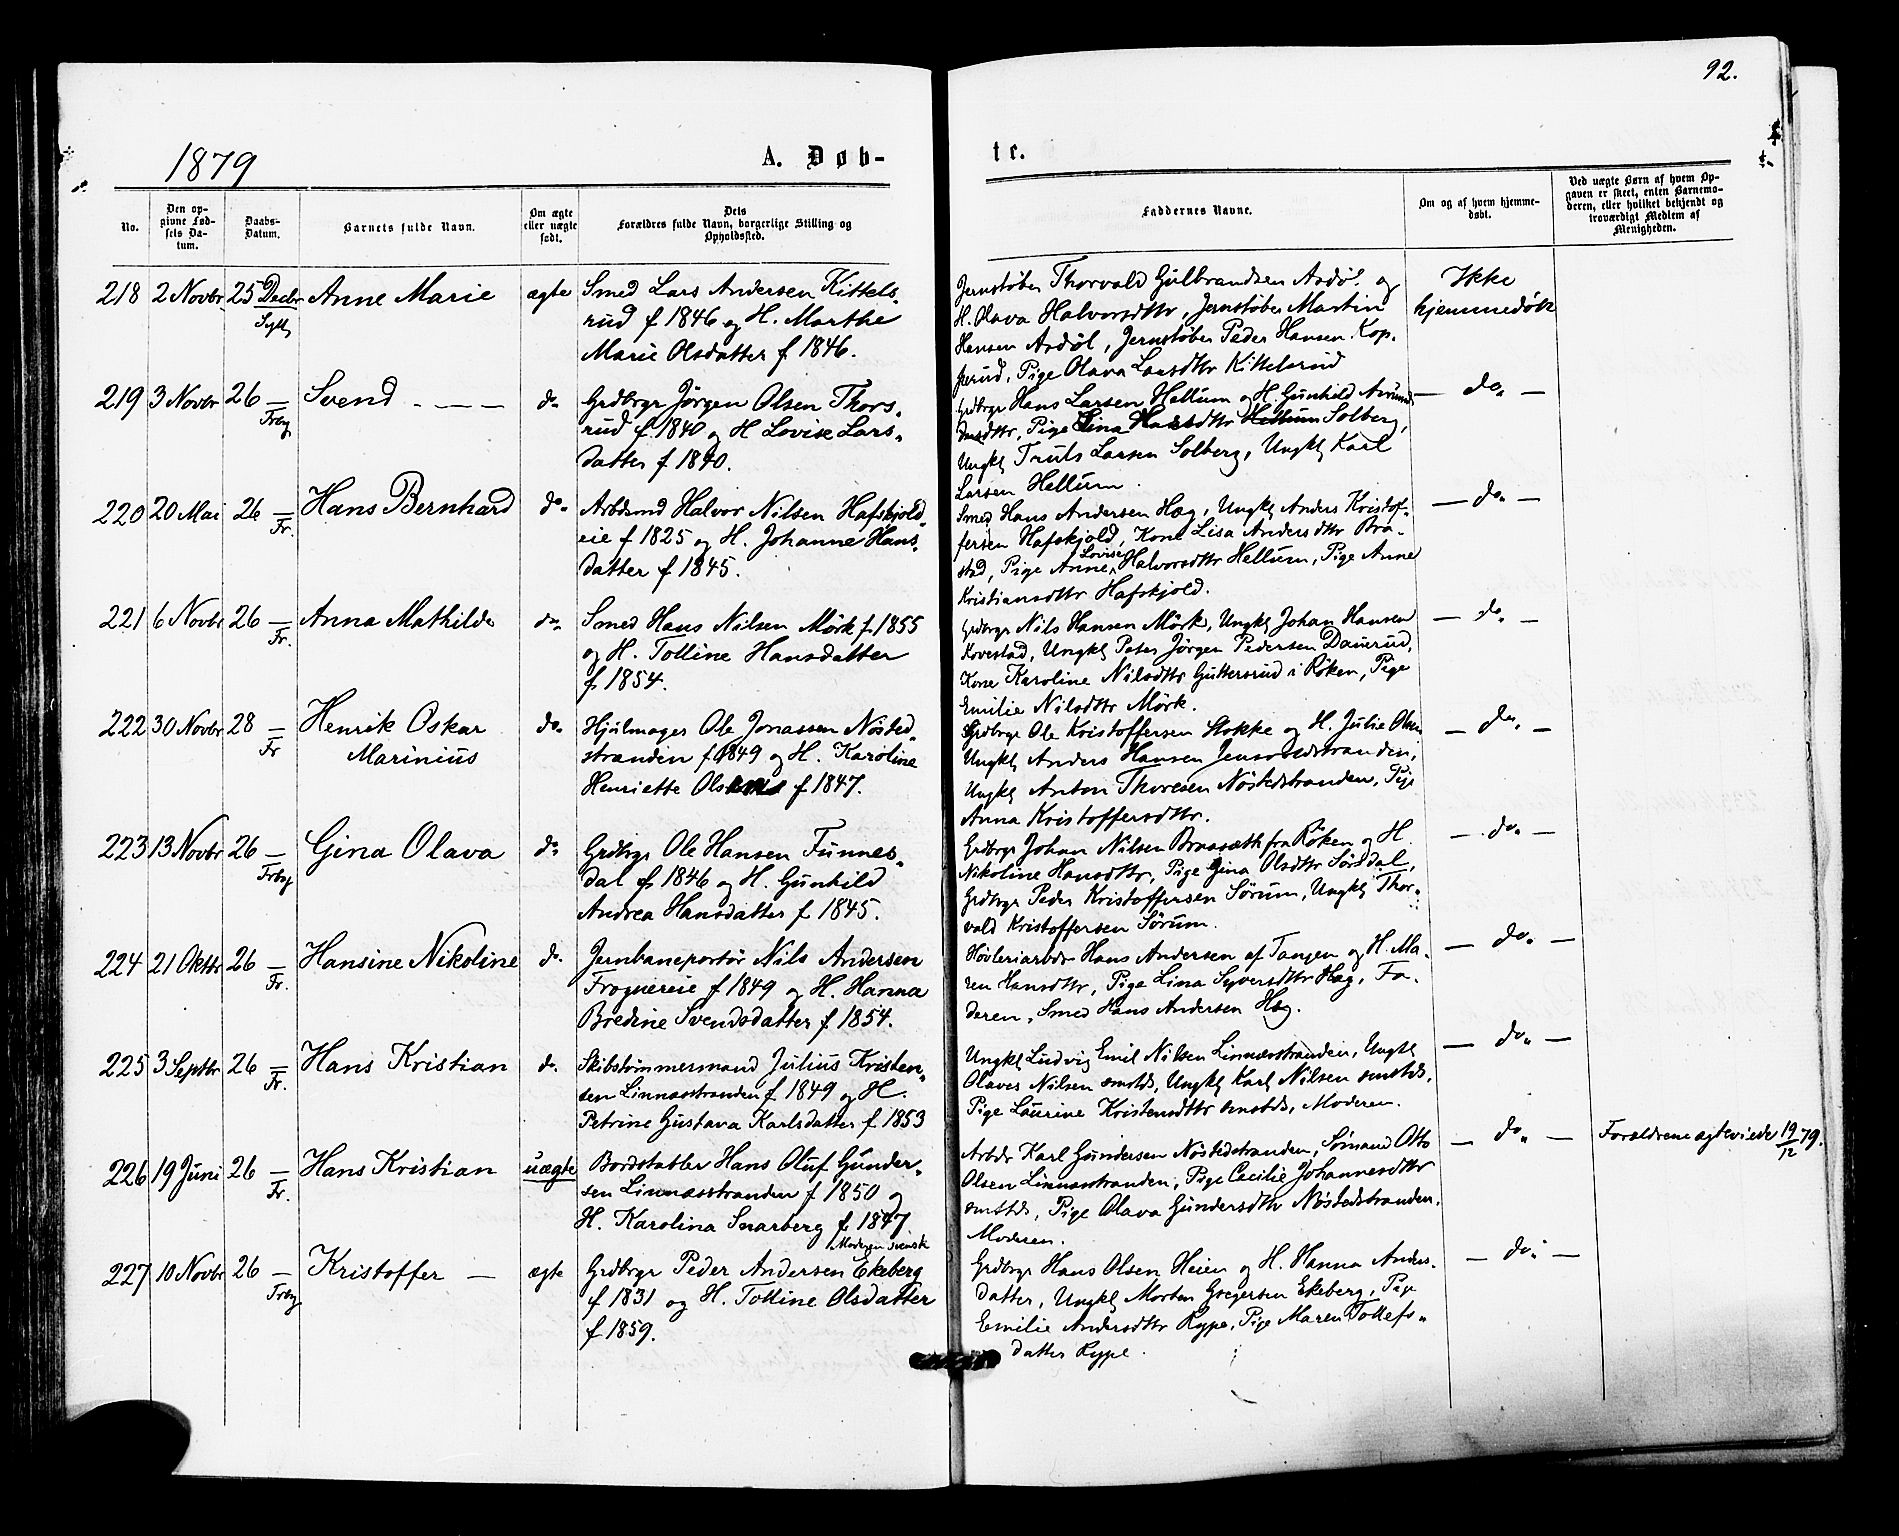 92.
1879
A. Døb-
te.
No.
Den op-
givne Fød-
sels Da-
tum.
Daabs-
Datum.
Barnets fulde Navn.
Om ægte
eller uægte
født.
Dets
Forældres fulde Navn, borgerlige Stilling og
Opholdssted.
Faddernes Navne.
Om og af hvem hjemme-
døbt.
Ved uægte Børn af hvem Op-
gaven er skeet, enten Barnemo-
deren, eller hvilket bekjendt og
troværdigt Medlem af
Menigheden.
218 2 Novbr 25 Decbr Anne Marie ægte Smed Lars Andersen Kittels-
Syll
rud f 1846 og H. Marthe
Marie Olsdatter f 1846.
Jernstøber Thorvald Gulbrandsen Asdøl og
H. Olava Halvorsdttr, Jernstøber Martin
Hansen Asdøl, Jernstøber Peder Hansen Kop-
perud, Pige Olava Larsdttr Kittelsrud
Ikke
hjemmedøbt
219 3 Novbr 26 — Svend - — — — do. Grdbrgr Jørgen Olsen Thors-
Frbg
rud f 1840 og H Lovise Lars-
datter f 1840.
Grdbrgr Hans Larsen Hellum og H. Gunhild Amund-
dsdttr, Pige Lina Hansdttr Hellum Solberg,
Ungkl Truls Larsen Solberg, Ungkl Karl
Larsen Hellum.
— do. —
220 20 Mai 26 — Hans Bernhard do. Arbdsmd Halvor Nilsen Hafskjold-
Fr.
eie f 1825 og H. Johanne Hans-
datter f 1845.
Smed Hans Andersen Hæg, Ungkl Anders Kristof-
fersen Hafskjold, Kone Lisa Andersdttr Bra-
stad, Pige Anne Lovise Halvorsdttr Hellum, Pige Anne
Kristiansdttr Hafskjold.
— do. —
221 6 Novbr 26 — Anna Mathilde do. Smed Hans Nilsen Mørk f 1855
Fr.
og H. Tolline Hansdatter
f 1854.
Grdbrgr Nils Hansen Mørk, Ungkl Johan Hansen
Kovestad, Ungkl Peter Jørgen Pedersen Dauerud,
Kone Karoline Nilsdttr Guttersrud i Røken, Pige
Emilie Nilsdttr Mørk.
— do. —
222 30 Novbr 28 — Henrik Oskar
Marinius do. Hjulmager Ole Jonassen Nøsted-
Fr
stranden f 1849 og H. Karoline
Henriette f 1847.
Grdbrgr Ole Kristoffersen Stokke og H. Julie Olsen
Ungkl Anders Hansen
Ungkl Anton Thoresen Nøstedstranden, Pige
Anna Kristoffersdttr.
— do. —
223 13 Novbr 26 — Gina Olava do. Grdbrgr Ole Hansen Funnes-
Frbg
dal f 1846 og H. Gunhild
Andrea Hansdatter f 1845.
Grdbrgr Johan Nilsen Braasæth fra Røken og H.
Nikoline Hansdttr, Pige Gina Olsdttr Sørsdal,
Grdbrgr Peder Kristoffersen Sørum, Ungkl Thor-
vald Kristoffersen Sørum.
— do. —
224 21 Oktbr 26 — Hansine Nikoline do. Jernbaneportør Nils Andersen
Fr.
Frognereie f 1849 og H. Hanna
Bredine Svendsdatter f 1854.
Høvleriarbdr Hans Andersen af Tangen og H. Ma-
ren Hansdttr, Pige Lina Syversdttr Hæg, Fa-
deren, Smed Hans Andersen Hæg.
— do. —
225 3 Septbr 26 — Hans Kristian do. Skibstømmermand Julius Kristen-
Fr.
sen Linnæsstranden f 1849 og H.
Petrine Gustava Karlsdatter f 1853
Ungkl Ludvig Emil Nilsen Linnæsstranden, Ungkl
Olaves Nilsen smstds, Ungkl Karl Nilsen smstds,
Pige Laurine Kristensdttr smstds, Moderen.
— do. —
226 19 Juni 26 — Hans Kristian uægte Bordstabler Hans Oluf Gunder-
Fr.
sen Linnæsstranden f 1850 og
H. Karolina Snarberg f 1847.
Moderen svensk
Arbdr Karl Gundersen Nøstedstranden, Sømand Otto
Olsen Linnæsstranden, Pige Cecilie Johannesdttr
smstds, Pige Olava Gundersdttr Nøstedstranden.
Moderen.
— do. — Forældrene ægteviede 19/12 79.
227 10 Novbr 26 — Kristoffer — ægte Grdbrgr Peder Andersen Ekeberg
Frbg
f 1831 og H. Tolline Olsdatter
f 1859.
Grdbrgr Hans Olsen Heien og H. Hanna Anders-
datter, Ungkl Morten Gregersen Ekeberg, Pige
Emilie Andersdttr Rype, Pige Maren Tollefs-
datter Rype.
— do. —